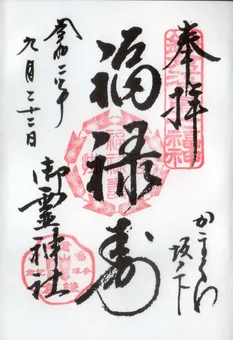 奉拝
かまくら
坂ノ下
福禄寿
御霊神社
令和二年
九月二十二日